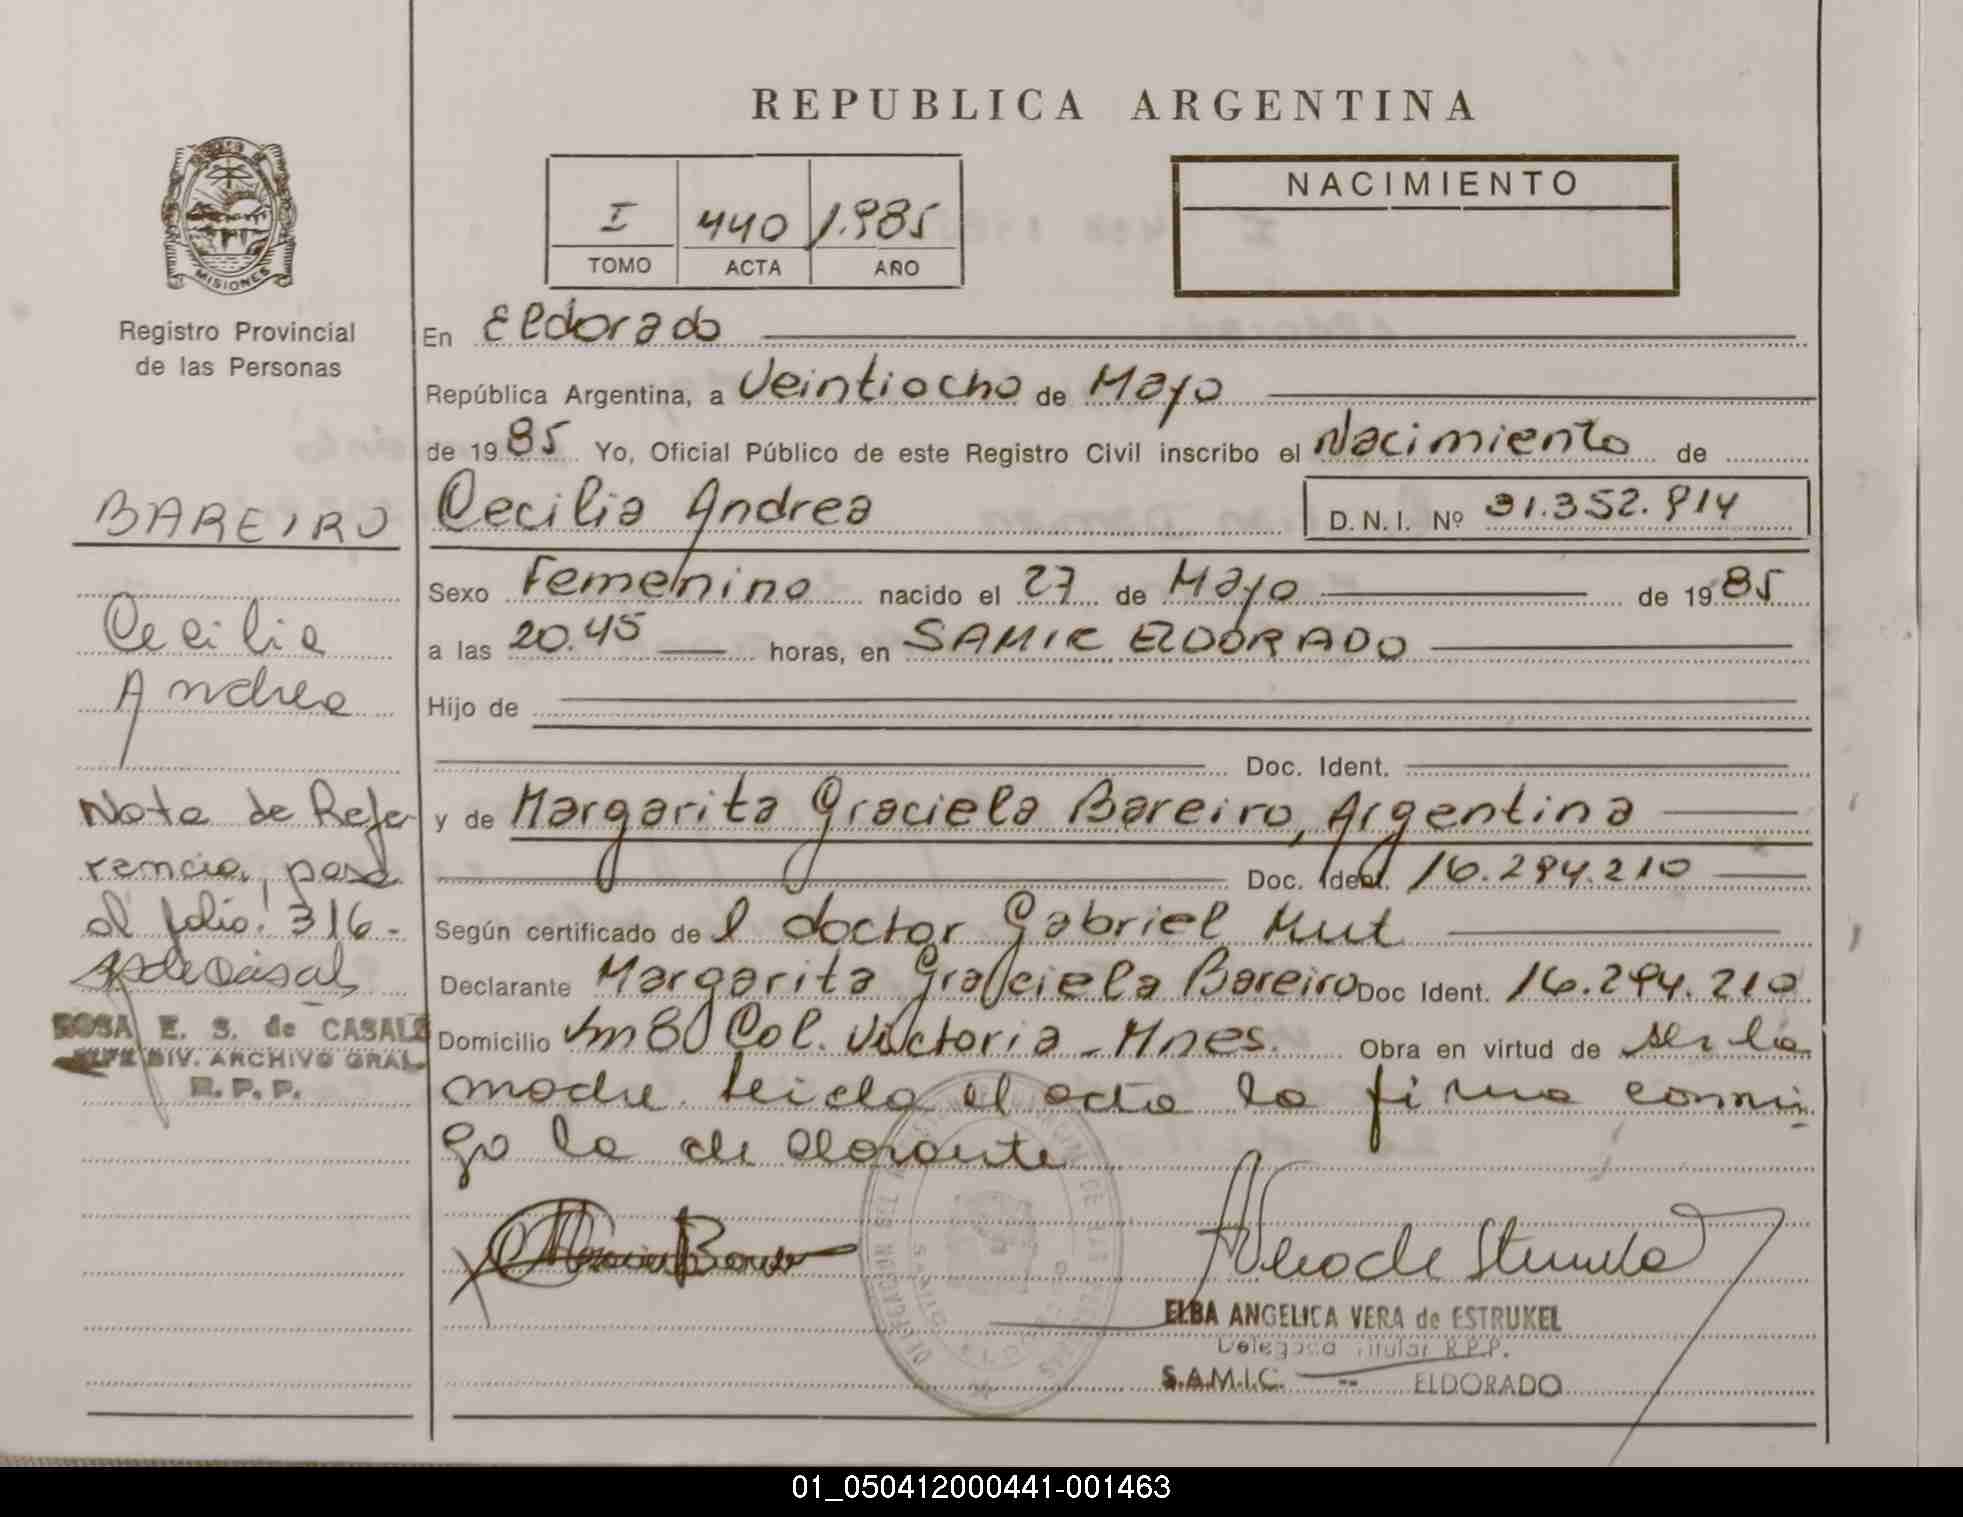 REPUBLICA ARGENTINA
MISIONES
Registro Provincial
de las Personas
I 440 1.985
TOMO ACTA AÑO
NACIMIENTO
En Eldorado
República Argentina, a Veintiocho de Mayo
de 1985 Yo, Oficial Público de este Registro Civil inscribo el Nacimiento de
Cecilia Andrea D.N.I. Nº 31.352.914
Sexo Femenino nacido el 27 de Mayo de 1985
a las 20.45 horas, en SAMIC ELDORADO
Hijo de
Doc. Ident.
y de Margarita Graciela Bareiro, Argentina
Doc. Ident. 16.294.210
Según certificado del doctor Gabriel Mut
Declarante Margarita Graciela Bareiro Doc Ident. 16.294.210
Domicilio Km 80 Col. Victoria - Mnes. Obra en virtud de ser la
madre. Leida el acta la firma conmi
go la declarante
BAREIRO
Cecilia
Andrea
Nota de Refe
rencia, pasa
al folio: 316 -
ROSA E. S. de CASALS
JEFE DIV. ARCHIVO GRAL
R. P. P.
ELBA ANGELICA VERA de ESTRUKEL
Delegada Titular R.P.P.
S.A.M.I.C. -- ELDORADO
01_050412000441-001463